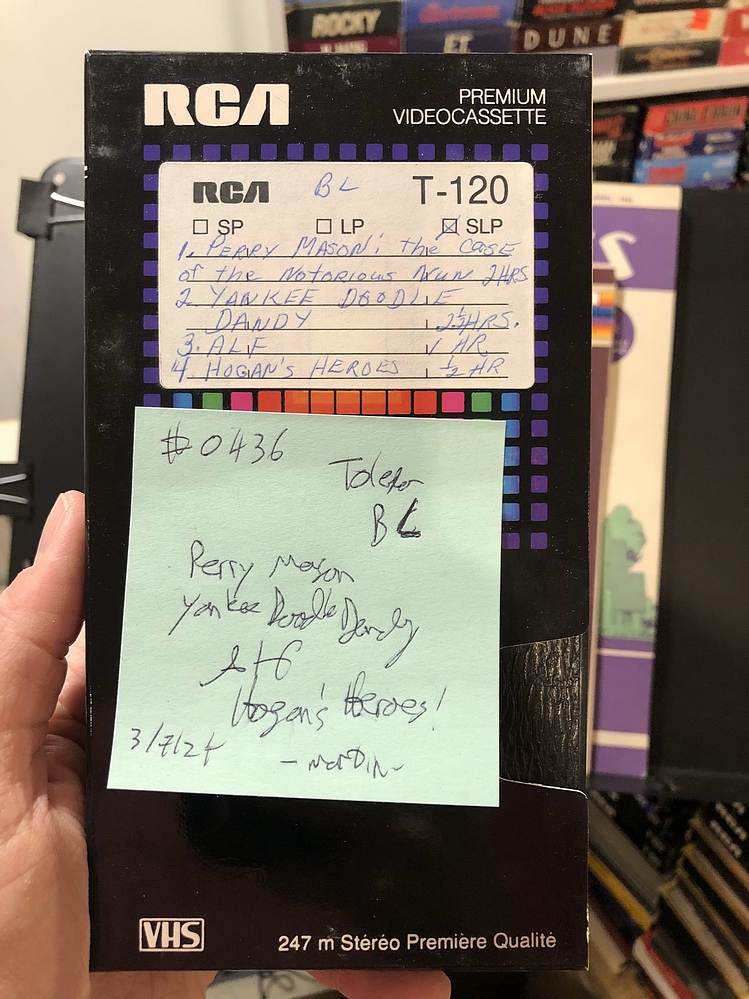 ROCKY
ET
DUNE
RCA
PREMIUM
VIDEOCASSETTE
RCA BL T-120
☐ SP ☐ LP ☒ SLP
1. PERRY MASON: the CASE
of the NOTORIOUS NUN 2HRS
2. YANKEE DOODLE
DANDY 2½HRS.
3. ALF 1 HR
4. HOGAN'S HEROES ½ HR
#0436
BL
Perry Mason
Yankee Doodle Dandy
ALF
Hogan's Heroes!
3/7/24
-Martin-
VHS
247 m Stéréo Première Qualité